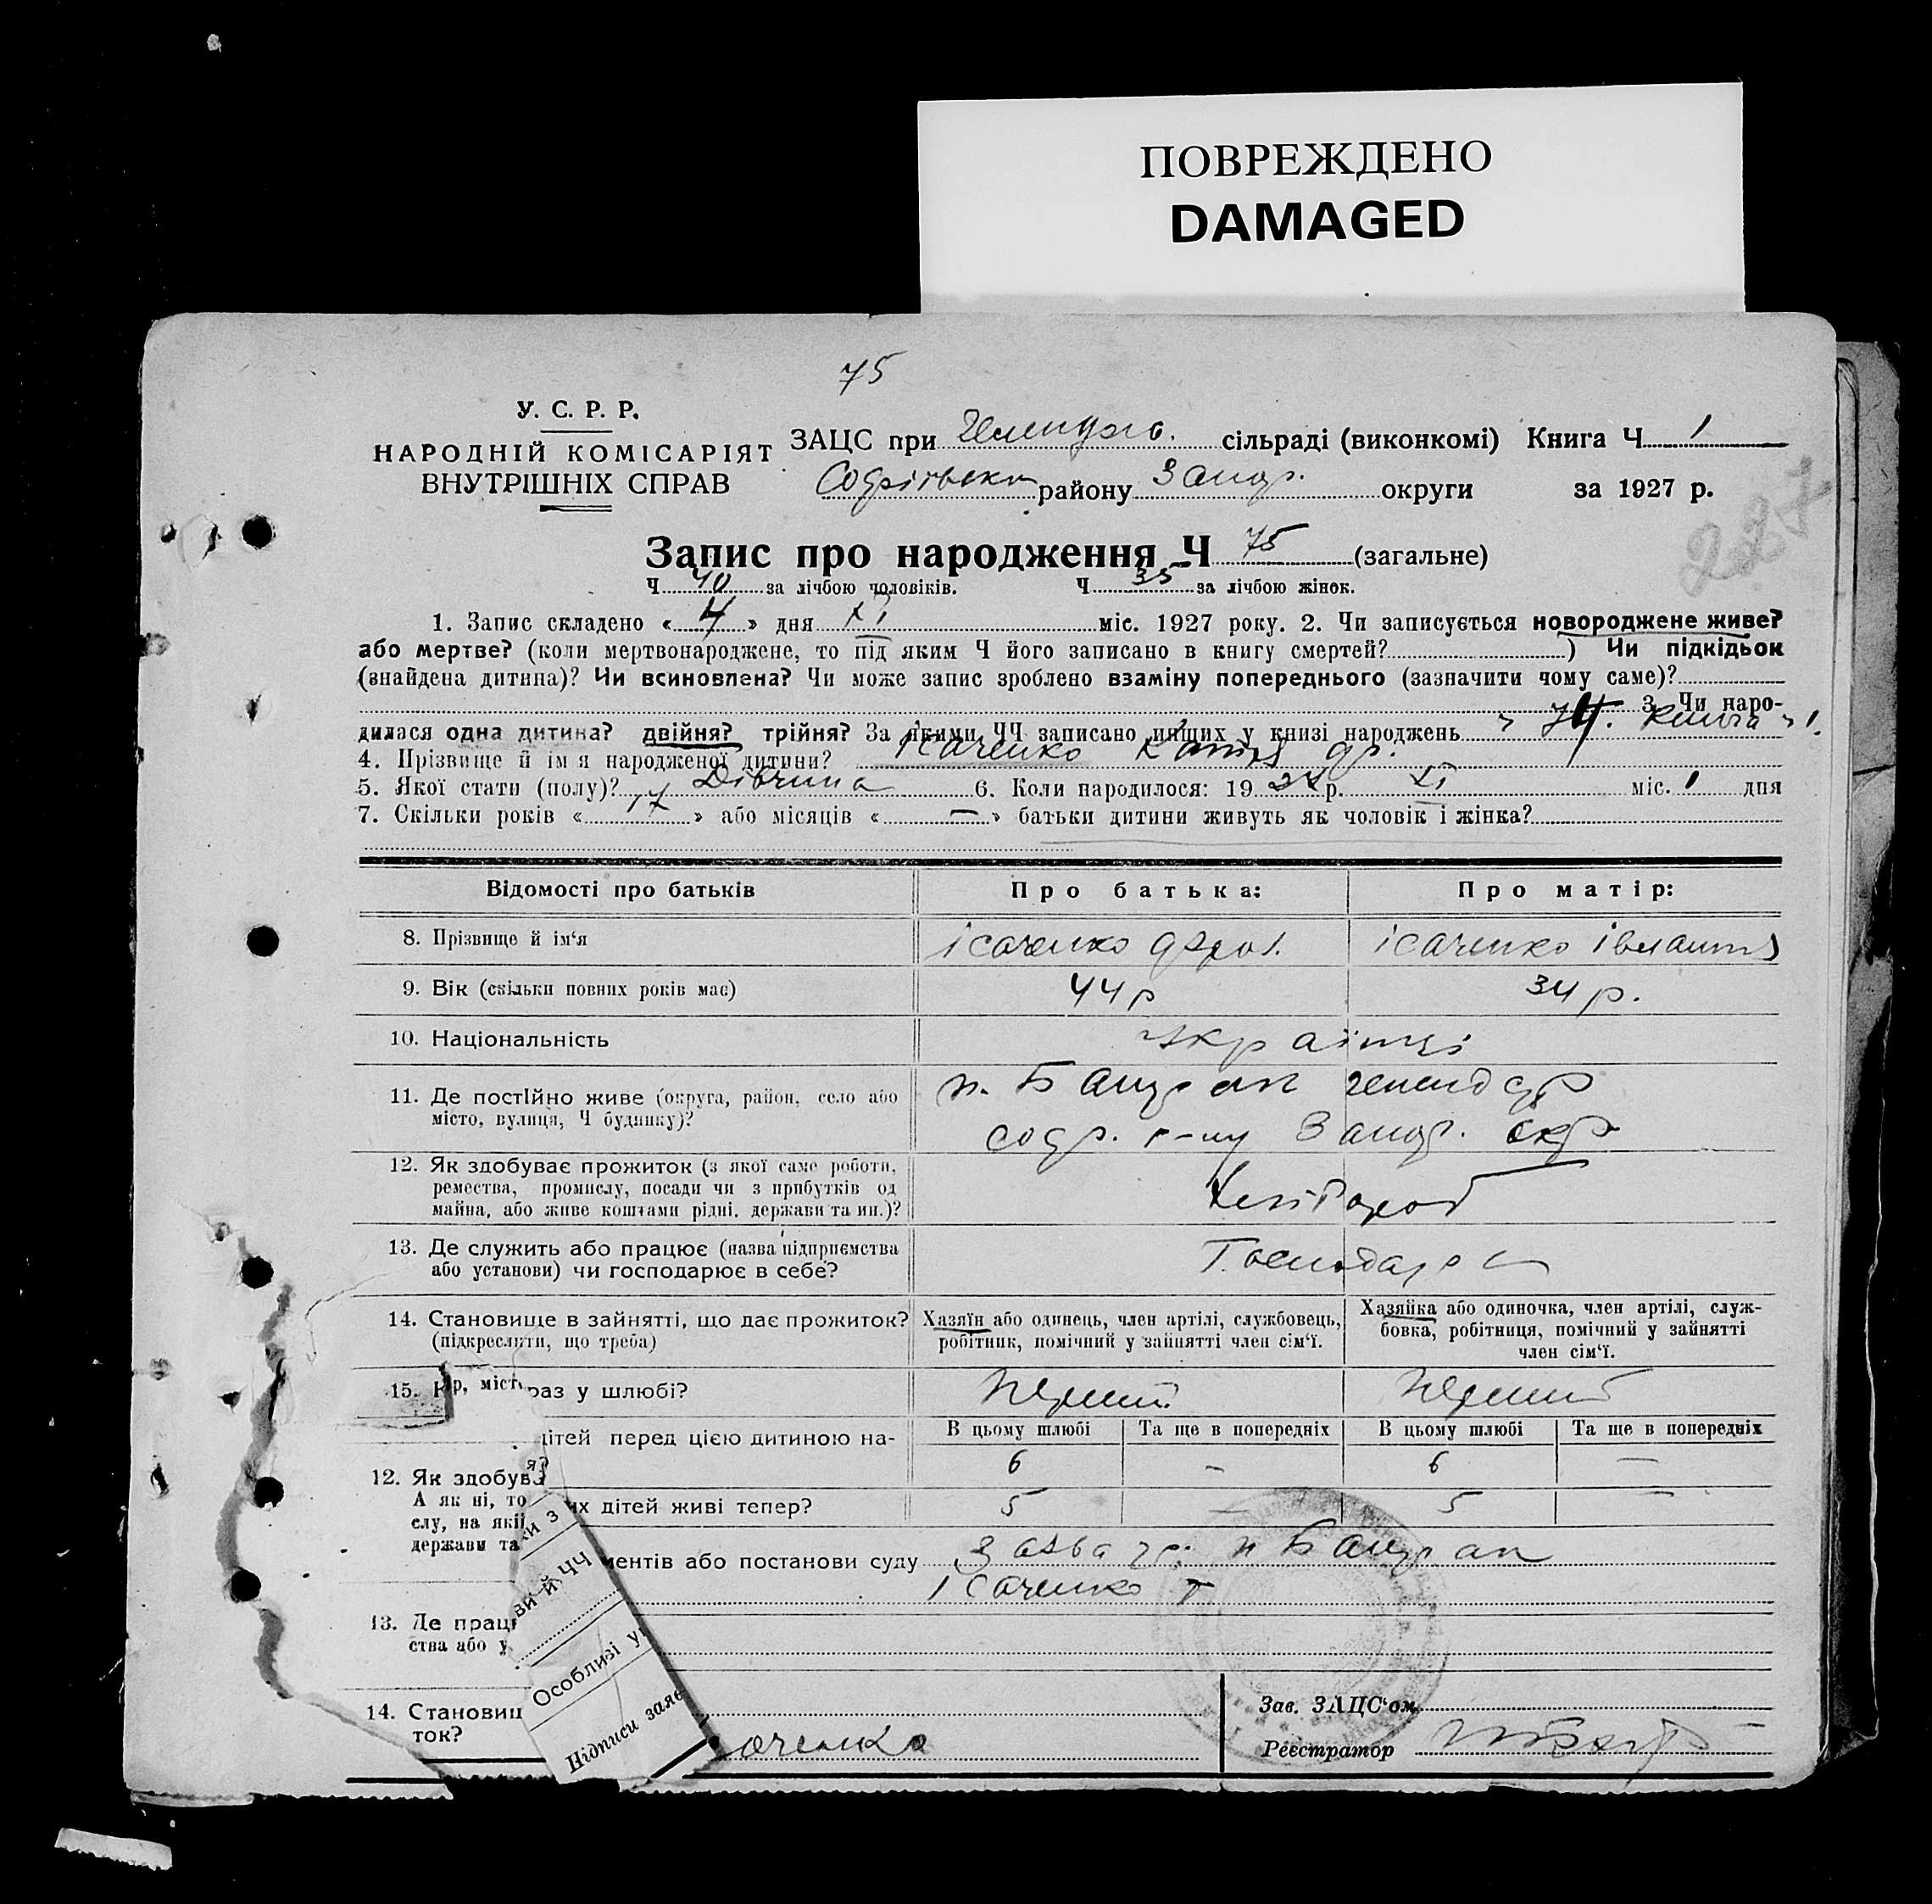 ПОВРЕЖДЕНО
DAMAGED
75
У. С. Р. Р.
НАРОДНІЙ КОМІСАРІЯТ
ВНУТРІШНІХ СПРАВ
ЗАЦС при сільраді (виконкомі) Книга Ч 1
району Запор. округи за 1927 р.
Запис про народження Ч 75 (загальне)
Ч 40 за лічбою чоловіків. Ч 35 за лічбою жінок.
1. Запис складено « 4 » дня XI міс. 1927 року. 2. Чи записується новороджене живе?
або мертве? (коли мертвонароджене, то під яким Ч його записано в книгу смертей? ) Чи підкідьок
(знайдена дитина)? Чи всиновлена? Чи може запис зроблено взаміну попереднього (зазначити чому саме)?
3. Чи наро-
дилася одна дитина? двійня? трійня? За якими ЧЧ записано инших у книзі народжень ч 74. книга ч 1.
4. Прізвище й ім'я народженої дитини? Ісаченко
5. Якої стати (полу)? Дівчина 6. Коли народилося: 19 27 р. XI міс. 1 дня
7. Скільки років « 17 » або місяців « — » батьки дитини живуть як чоловік і жінка?
Відомості про батьків
Про батька:
Про матір:
8. Прізвище й ім'я
Ісаченко
Ісаченко
9. Вік (скільки повних років має)
44 р
34 р.
10. Національність
Українці
11. Де постійно живе (округа, район, село або
місто, вулиця, Ч будинку)?
р-ну Запор. окр
12. Як здобуває прожиток (з якої саме роботи,
ремества, промислу, посади чи з прибутків од
майна, або живе коштами рідні, держави та ин.)?
Хлібороб
13. Де служить або працює (назва підприємства
або установи) чи господарює в себе?
14. Становище в зайнятті, що дає прожиток?
(підкреслити, що треба)
Хазяїн або одинець, член артілі, службовець,
робітник, помічний у зайнятті член сім'ї.
Хазяйка або одиночка, член артілі, служ-
бовка, робітниця, помічний у зайнятті
член сім'ї.
15.
р, міст
раз у шлюбі?
Перший
Перший
дітей перед цією дитиною на-
В цьому шлюбі
Та ще в попередніх
В цьому шлюбі
Та ще в попередніх
6
–
6
—
их дітей живі тепер?
5
—
5
—
12. Як здобува
А як ні, то
слу, на якій
держави та
ки з
ви й ЧЧ
ментів або постанови суду
Ісаченко
13. Де праці
ства або у
Особливі у
Підписи заяв
14. Становищ
ток?
аченко
Зав. ЗАЦС'ом
Реєстратор